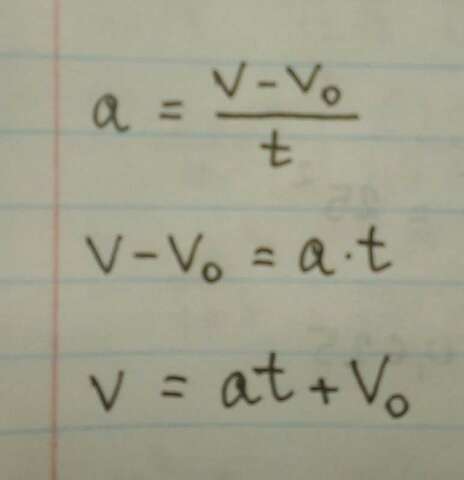 a = (V - V₀) / t
V - V₀ = a · t
V = at + V₀